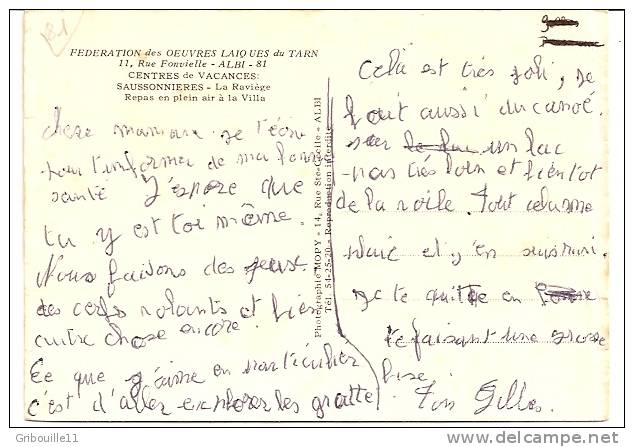 81
FEDERATION des OEUVRES LAIQUES du TARN
11, Rue Fonvielle - ALBI - 81
CENTRES de VACANCES:
SAUSSONNIERES - La Raviège
Repas en plein air à la Villa
chère maman je t'écri
pour t'informer de ma bonne
santé J'espère que
tu y est toi même.
Nous faisons des jeux
des cerfs volants et bien
autre chose encore.
Ce que j'aime en particulier
c'est d'aller explorer les grottes
Photographie MOPY - 14, Rue Ste-Cécile - ALBI
Tél. 54-25-20 - Reproduction interdite
Celà est très joli, je
fait aussi du canoë.
sur le lac un lac
pas très loin et bientot
de la voile. Tout cela me
plaic et j'en suis ravi.
Je te quitte en
te faisant une grosse
bise.
Ton Gilles.
Gribouille11
http://www.delcampe.net